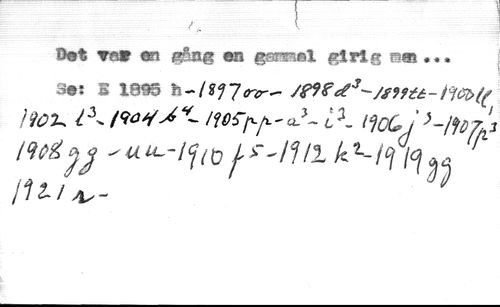 Det var en gång en gammel girig man ...
Se: E 1895 h-1897oo-1898d³-1899tt-1900ll,
1902 t³-1904 b⁴-1905pp-a³-i³-1906j³-1907p³
1908gg-uu-1910f5-1912k2-1919gg
1921r-